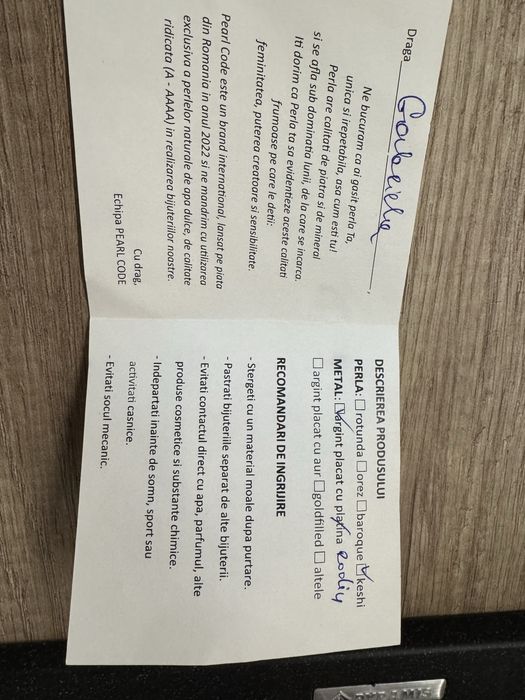 Draga Gabriela,
Ne bucuram ca ai gasit perla Ta,
unica si irepetabila, asa cum esti tu!
Perla are calitati de piatra si de mineral
si se afla sub dominatia lunii, de la care se incarca.
Iti dorim ca Perla ta sa evidentieze aceste calitati
frumoase pe care le detii:
feminitatea, puterea creatoare si sensibilitate.
Pearl Code este un brand international, lansat pe piata
din Romania in anul 2022 si ne mandrim cu utilizarea
exclusiva a perlelor naturale de apa dulce, de calitate
ridicata (A - AAAA) in realizarea bijuteriilor noastre.
Cu drag,
Echipa PEARL CODE
DESCRIEREA PRODUSULUI
PERLA: ☐ rotunda ☐ orez ☐ baroque ☑ keshi
METAL: ☑ argint placat cu platina rodiu
☐ argint placat cu aur ☐ goldfilled ☐ altele
RECOMANDARI DE INGRIJIRE
- Stergeti cu un material moale dupa purtare.
- Pastrati bijuteriile separat de alte bijuterii.
- Evitati contactul direct cu apa, parfumul, alte
produse cosmetice si substante chimice.
- Indepartati inainte de somn, sport sau
activitati casnice.
- Evitati socul mecanic.